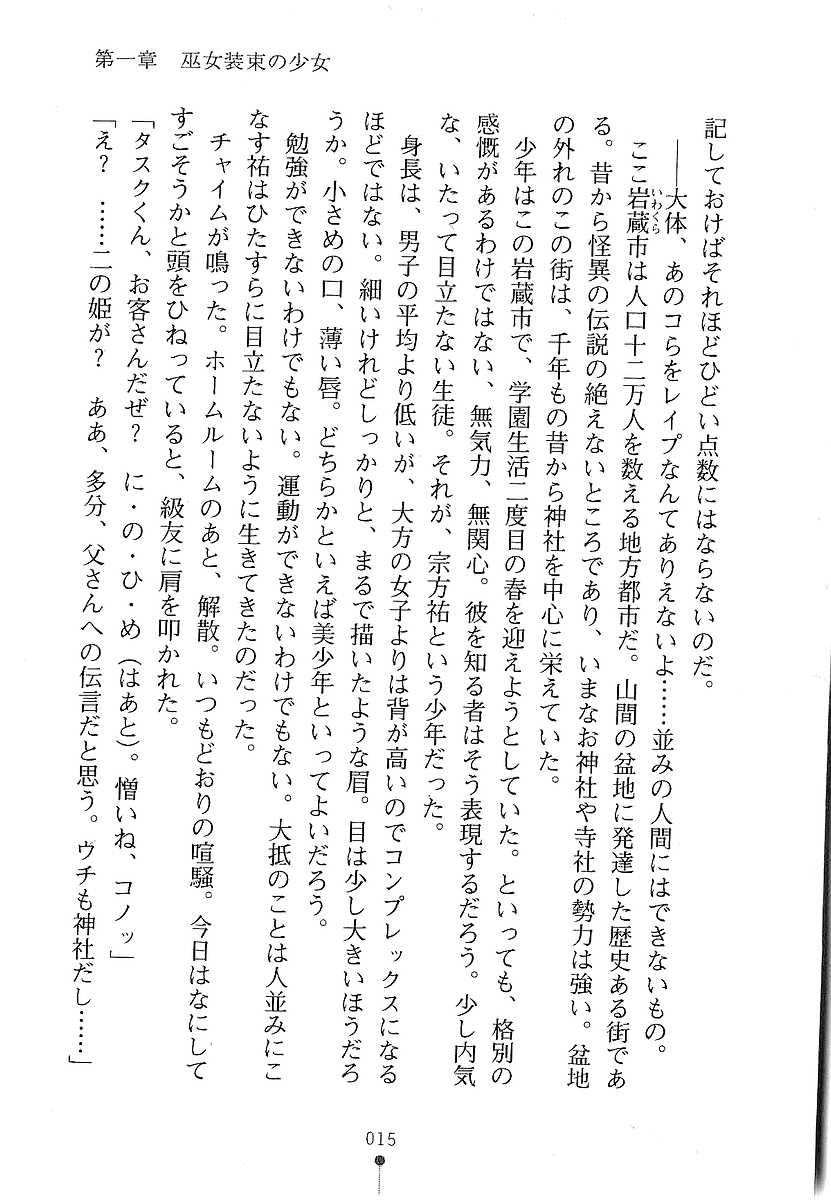 第一章　巫女装束の少女
記しておけばそれほどひどい点数にはならないのだ。
――大体、あのコらをレイプなんてありえないよ……並みの人間にはできないもの。
ここ岩蔵市は人口十二万人を数える地方都市だ。山間の盆地に発達した歴史ある街であ
いわくら
る。昔から怪異の伝説の絶えないところであり、いまなお神社や寺社の勢力は強い。盆地
の外れのこの街は、千年もの昔から神社を中心に栄えていた。
少年はこの岩蔵市で、学園生活二度目の春を迎えようとしていた。といっても、格別の
感慨があるわけではない、無気力、無関心。彼を知る者はそう表現するだろう。少し内気
な、いたって目立たない生徒。それが、宗方祐という少年だった。
身長は、男子の平均より低いが、大方の女子よりは背が高いのでコンプレックスになる
ほどではない。細いけれどしっかりと、まるで描いたような眉。目は少し大きいほうだろ
うか。小さめの口、薄い唇。どちらかといえば美少年といってよいだろう。
勉強ができないわけでもない。運動ができないわけでもない。大抵のことは人並みにこ
なす祐はひたすらに目立たないように生きてきたのだった。
チャイムが鳴った。ホームルームのあと、解散。いつもどおりの喧騒。今日はなにして
すごそうかと頭をひねっていると、級友に肩を叩かれた。
「タスクくん、お客さんだぜ？　に・の・ひ・め（はあと）。憎いね、コノッ」
「え？　……二の姫が？　ああ、多分、父さんへの伝言だと思う。ウチも神社だし……」
015